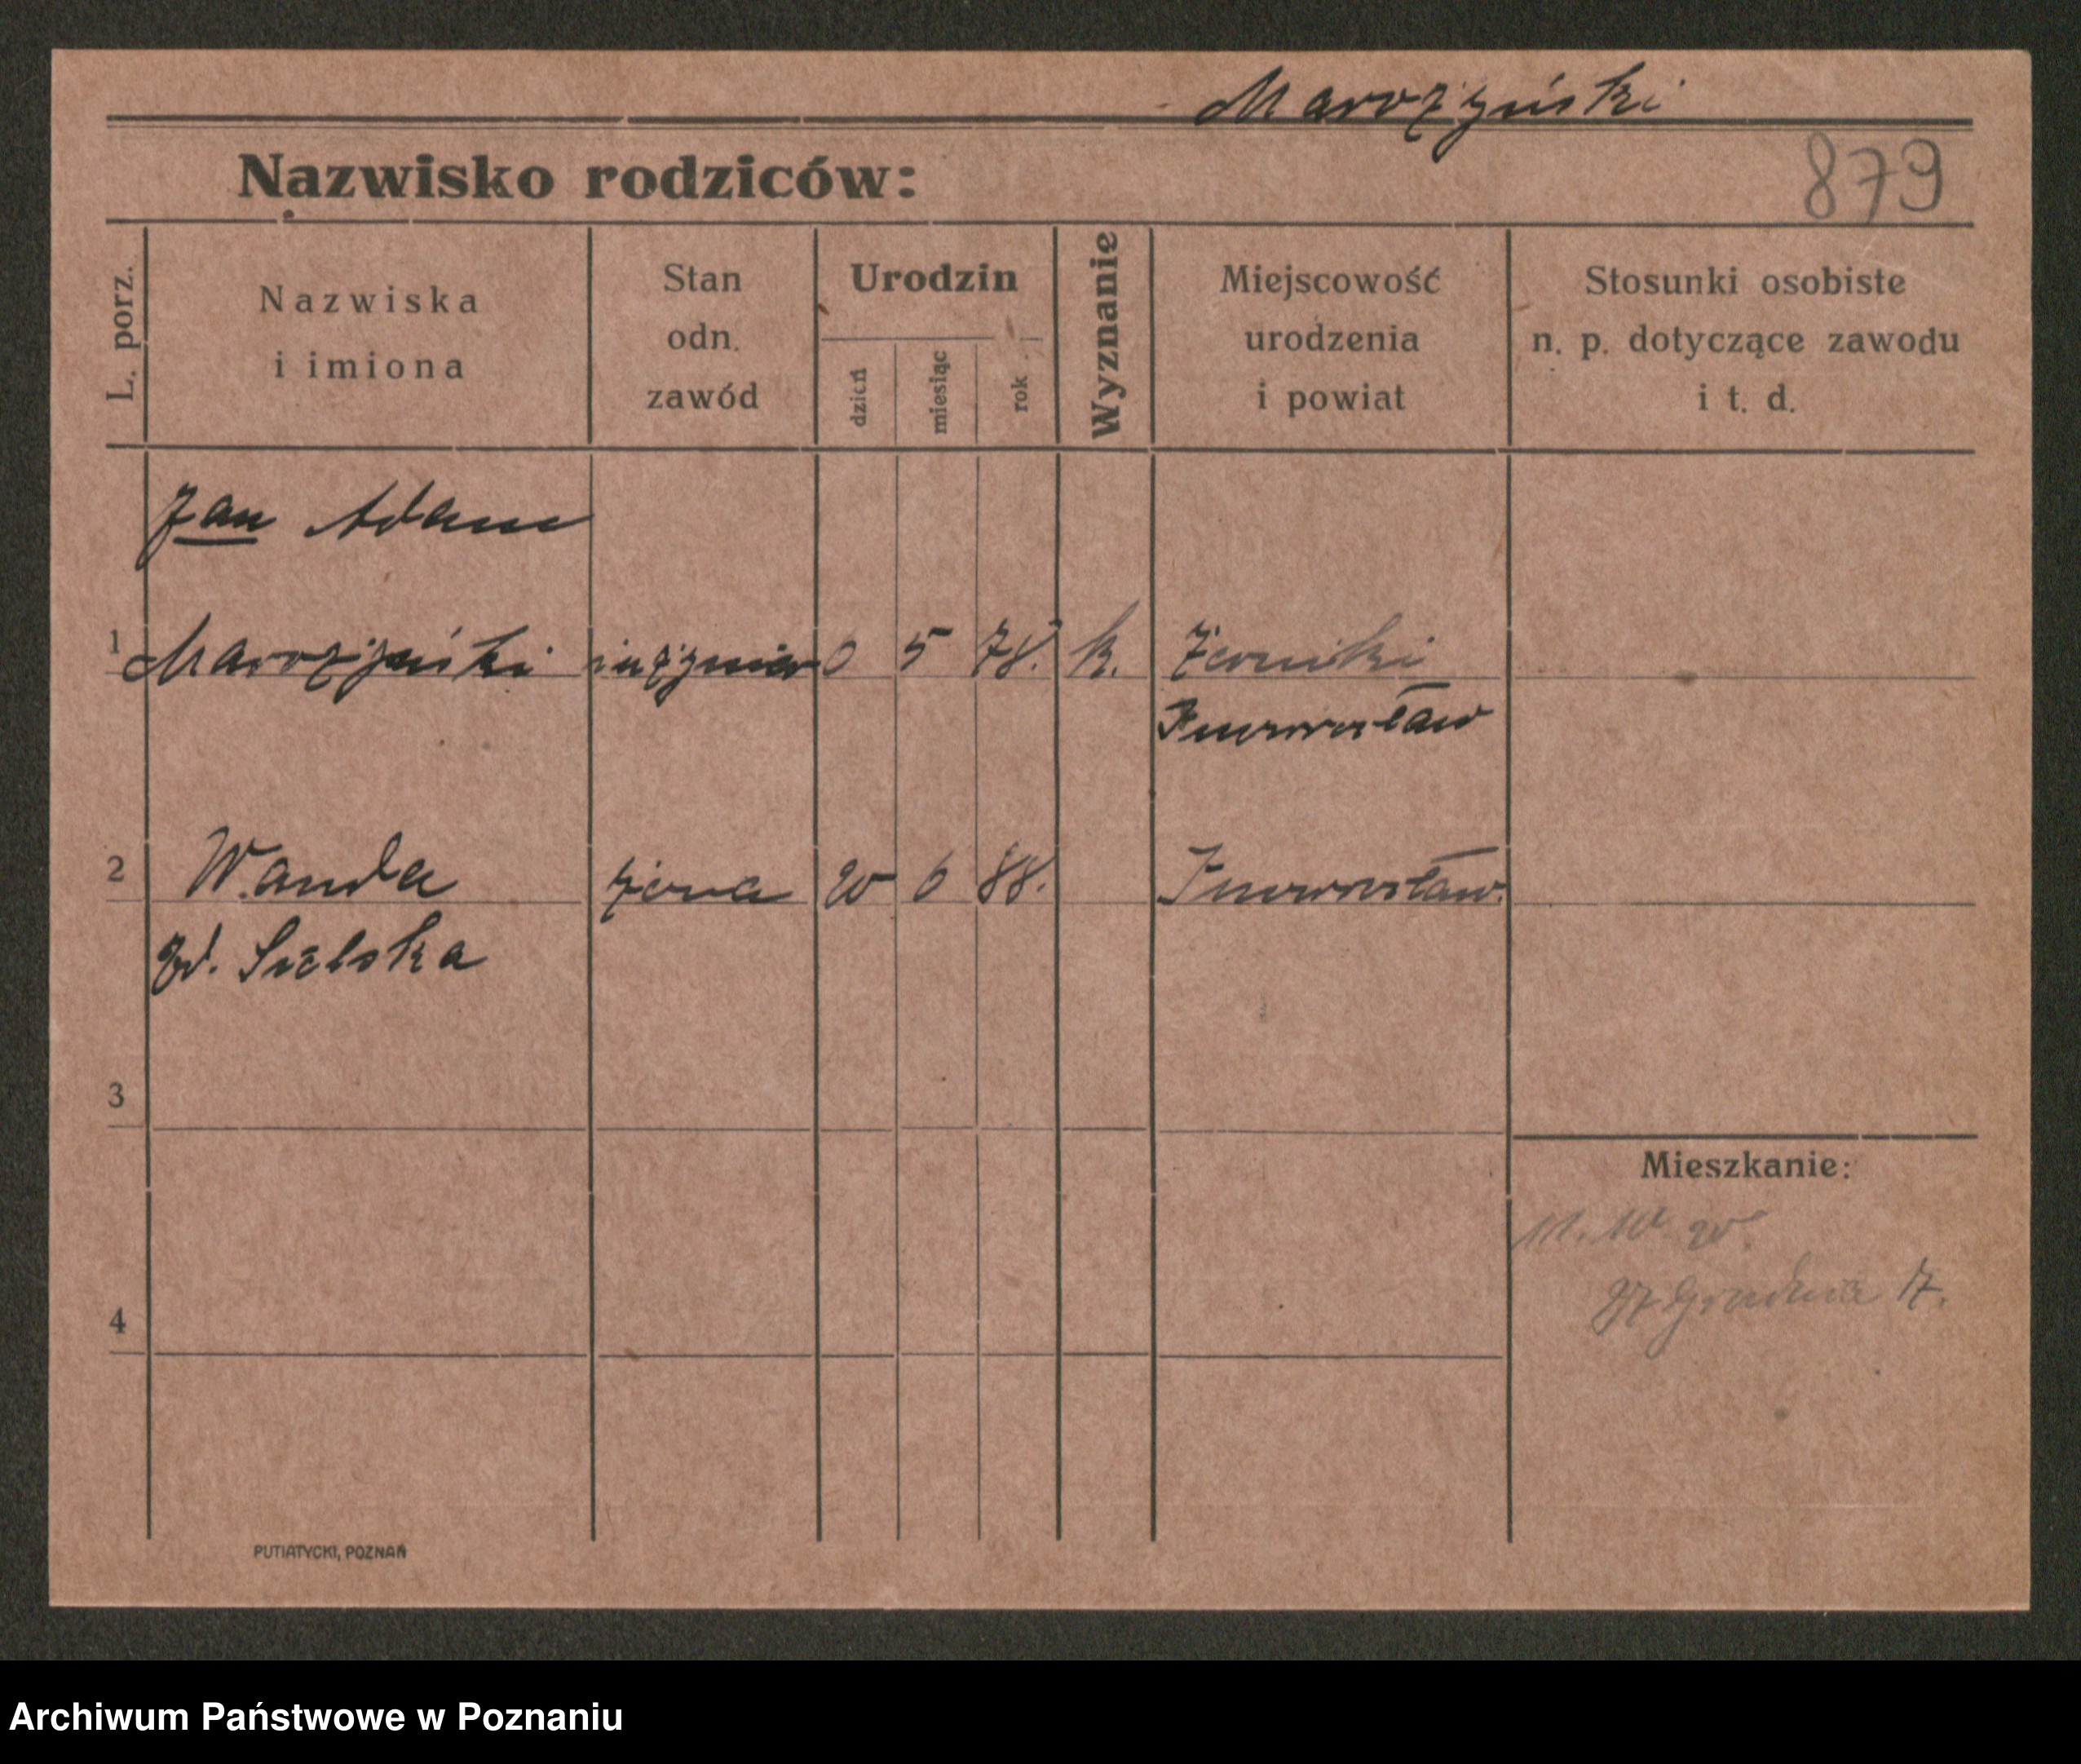 Marożyński
Nazwisko rodziców:
879
L. porz.
Nazwiska
i imiona
Stan
odn.
zawód
Urodzin
dzień
miesiąc
rok
Wyznanie
Miejscowość
urodzenia
i powiat
Stosunki osobiste
n. p. dotyczące zawodu
i t. d.
Jan Adam
1 Marożyński inżynier 5 78. k. Żerniki
Inowrocław
2 Wanda żona 20 6 88. Inowrocław.
zd. Sielska
3
Mieszkanie:
4
27 Grudnia 17.
PUTIATYCKI, POZNAŃ
Archiwum Państwowe w Poznaniu